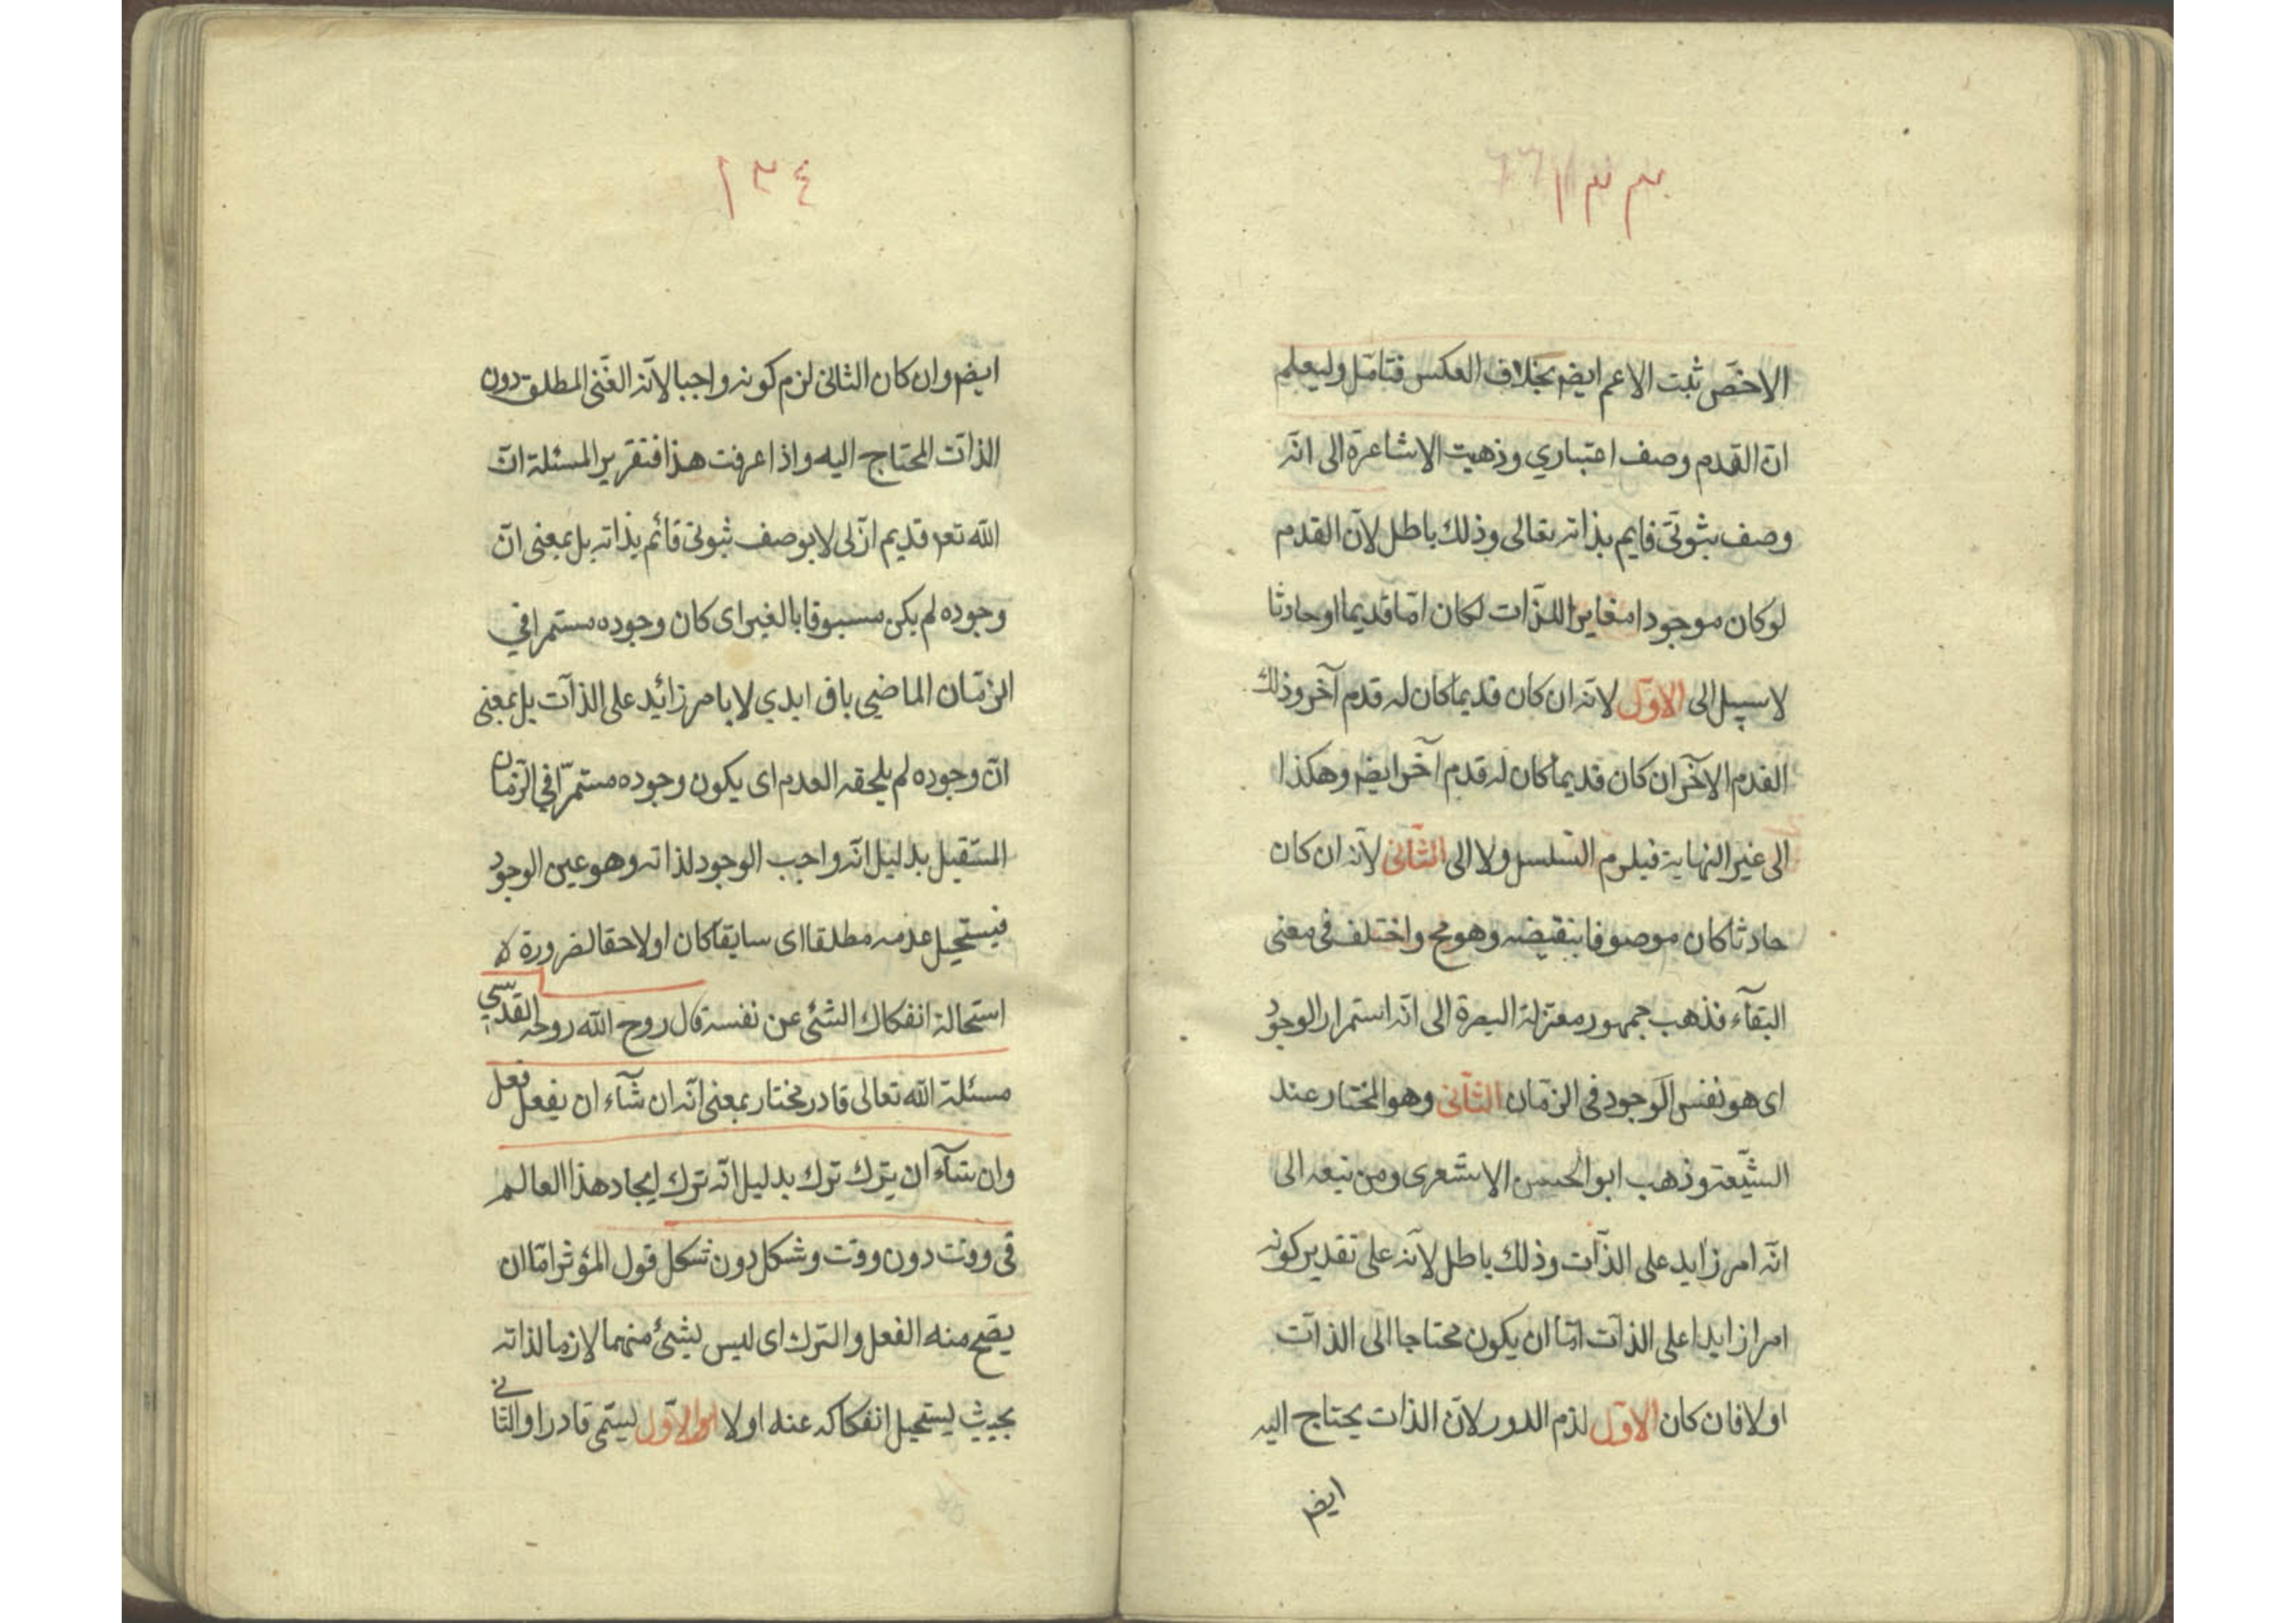 ١٣٣
الاخصّ ثبت الاعم ايضم بخلاف العكس فتامّل وليعلم
انّ القدم وصف اعتباري وذهبت الاشاعرة الى انّه
وصف ثبوتّى قايم بذاته تعالى وذلك باطل لانّ القدم
لوكان موجودا مغايرا للذّات لكان امّا قديما او حادثا
لا سبيل الى الاوّل لانّه ان كان قديما كان له قدم آخر وذلك
القدم الآخر ان كان قديما كان له قدم آخر ايضم وهكذا
الى غير النهاية فيلزم التسلسل ولا الى الثّانى لانّه ان كان
حادثا كان موصوفا بنقيضه وهو مح واختلف فى معنى
البقآء فذهب جمهور معتزلة البصرة الى انّه استمرار الوجود
اى هو نفس الوجود فى الزمّان الثّانى وهو المختار عند
الشيّعة وذهب ابو الحسن الاشعرى ومن تبعه الى
انّه امر زايد على الذّات وذلك باطل لانّه على تقدير كونه
امرا زايدا على الذّات امّا ان يكون محتاجا الى الذّات
اولا فان كان الاوّل لزم الدور لانّ الذات يحتاج اليه
ايضم
١٣٤
ايضم وان كان الثانى لزم كونه واجبا لانّه الغنّى المطلق دون
الذاتّ المحتاج اليه واذا عرفت هذا فتقرير المسئلة انّ
اللّه تعم قديم ازلى لا بوصف ثبوتى قائم بذاته بل بمعنى انّ
وجوده لم يكن مسبوقا بالغير اى كان وجوده مستمرا في
الزمّان الماضي باق ابدي لا بامر زائد على الذآت بل بمعنى
انّ وجوده لم يلحقه العدم اى يكون وجوده مستمرّا في الزّمان
المستقبل بدليل انّه واجب الوجود لذاته وهو عين الوجود
فيستحيل عدمه مطلقا اى سابقا كان او لاحقا لضرورة
استحالة انفكاك الشئ عن نفسه قال روح اللّه روحه القدسي
مسئلة اللّه تعالى قادر مختار بمعنى انّه ان شآء ان يفعل فعل
وان شآء ان يترك ترك بدليل انّه ترك ايجاد هذا العالم
فى وقت دون وقت وشكل دون شكل قول المؤثر امّا ان
يصّح منه الفعل والترك اى ليس بشئ منهما لازما لذاته
بحيث يستحيل انفكاكه عنه اولا والاوّل يسّمى قادرا والثّانى